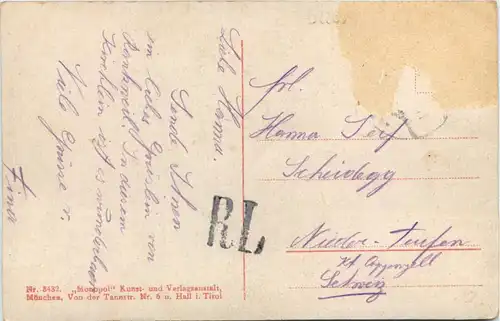 Liebe Hanna.
Sende Ihnen
ein liebes Grüßlein von
Rankweil. In diesem
Kirchlein ist es wunderbar
Viele Grüsse v.
Frl.
Hanna
Scheidegg
Nieder-Teufen
Kt. Appenzell
Schweiz
RL
Nr. 3437. „Monopol" Kunst- und Verlagsanstalt,
München, Von der Tannstr. Nr. 6 u. Hall i. Tirol